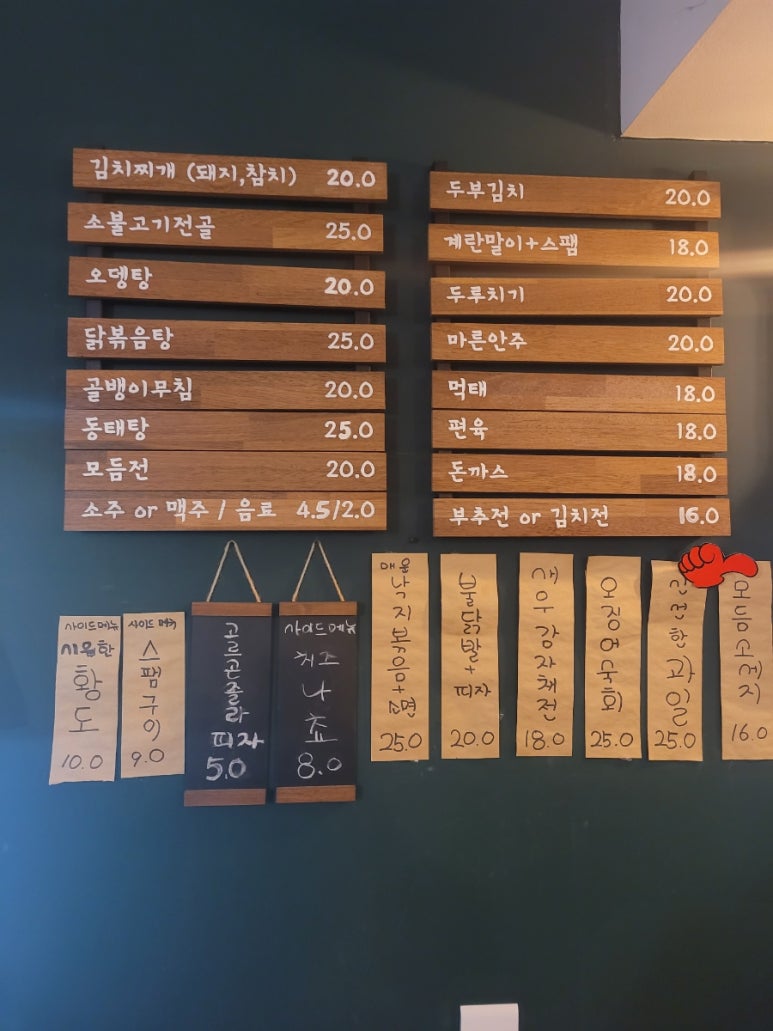 김치찌개 (돼지,참치) 20.0
소불고기전골 25.0
오뎅탕 20.0
닭볶음탕 25.0
골뱅이무침 20.0
동태탕 25.0
모듬전 20.0
소주 or 맥주 / 음료 4.5/2.0
두부김치 20.0
계란말이+스팸 18.0
두루치기 20.0
마른안주 20.0
먹태 18.0
편육 18.0
돈까스 18.0
부추전 or 김치전 16.0
사이드메뉴
시원한
황도
10.0
사이드 메뉴
스팸구이
9.0
고르곤졸라
피자
5.0
사이드메뉴
치즈
나쵸
8.0
매운
낙지볶음+소면
25.0
불닭발+
피자
20.0
새우감자채전
18.0
오징어숙회
25.0
간단한과일
25.0
모듬소세지
16.0